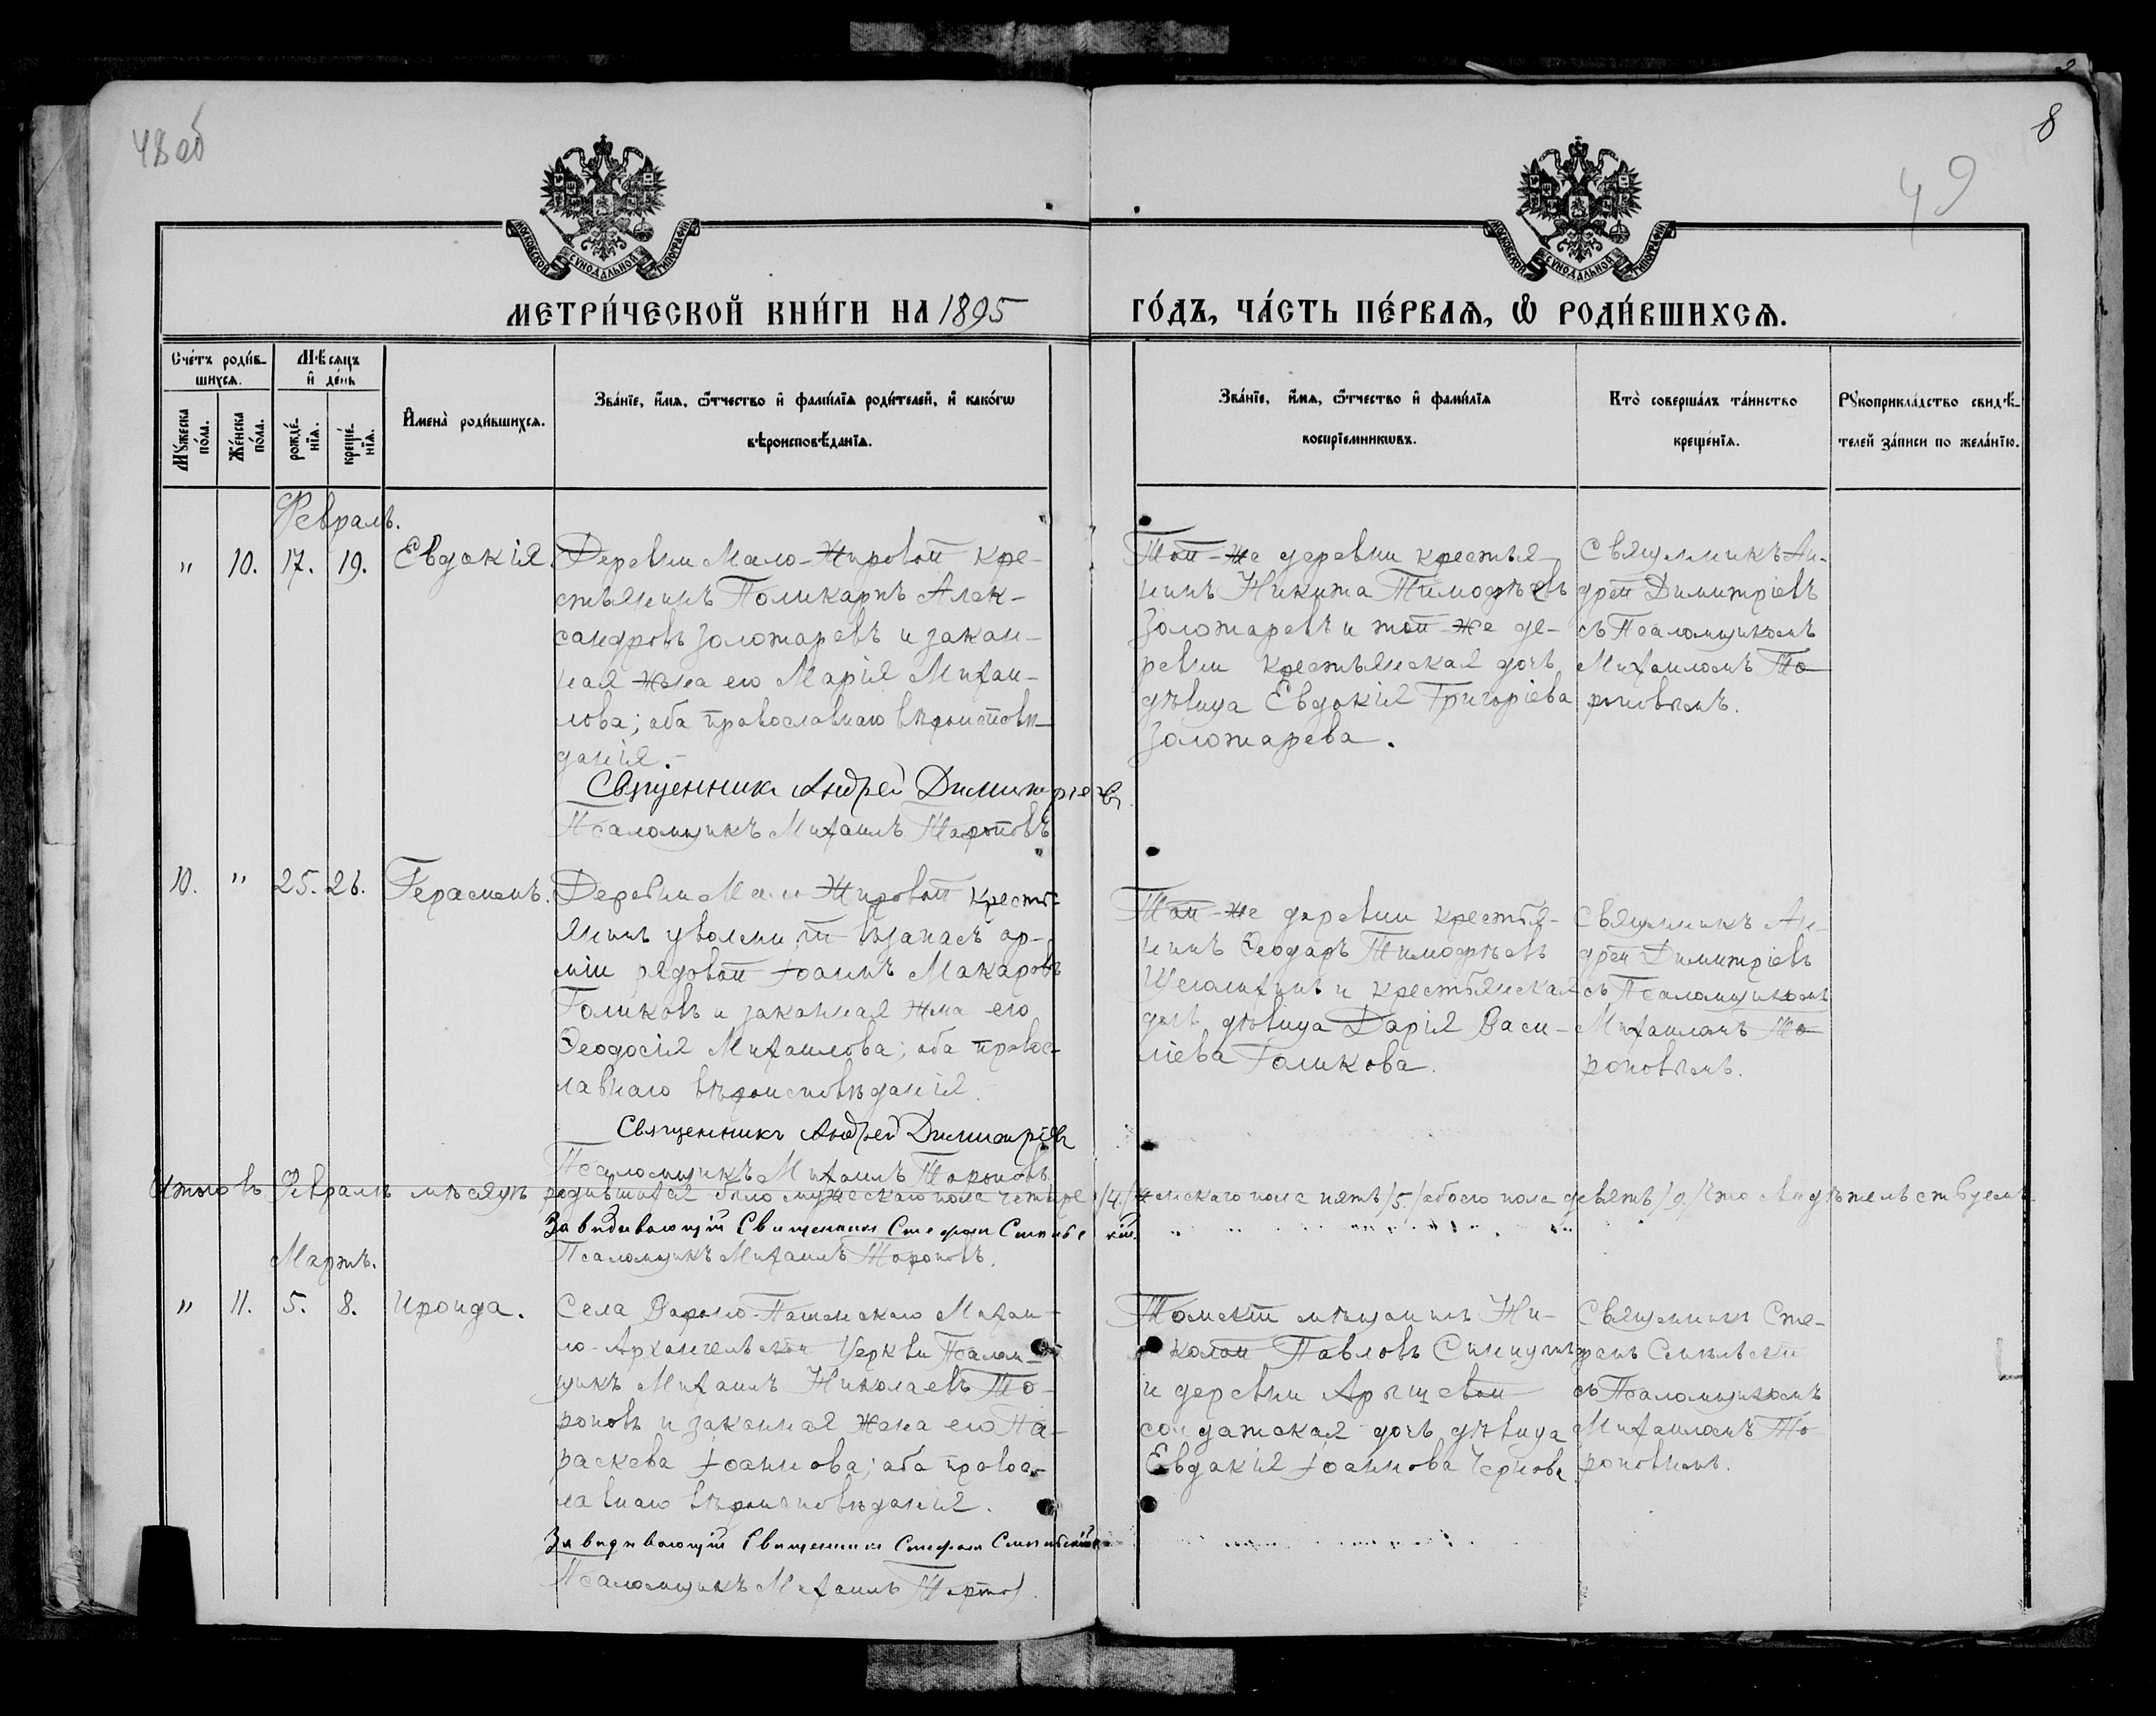 48 об
8
49
МОСКОВСКОЙ СѴНОДАЛЬНОЙ ТИПОГРАФІИ
МОСКОВСКОЙ СѴНОДАЛЬНОЙ ТИПОГРАФІИ
МЕТРИ́ЧЕСКОЙ КНИ́ГИ НА 1895 ГО́ДЪ, ЧА́СТЬ ПЕ́РВАѦ, Ѡ РОДИ́ВШИХСѦ.
Сче́тъ роди́в-
шихсѧ.
Мѣ́сяцъ
и҆ де́нь
Мꙋ́жеска
по́ла.
Же́нска
по́ла.
рожде́-
нїѧ.
креще́-
нїѧ.
И҆мена̀ роди́вшихсѧ.
Зва́нїе, и҆́мѧ, ѻ҆́тчество и҆ фами́лїѧ роди́телей, и҆ како́гѡ
вѣроисповѣ́данїѧ.
Зва́нїе, и҆́мѧ, ѻ҆́тчество и҆ фами́лїѧ
воспрїе́мникѡвъ.
Кто̀ соверша́лъ та́инство
креще́нїѧ.
Рꙋкоприкла́дство свидѣ́-
телей за́писи по жела́нїю.
Февраль.
" 10. 17. 19. Евдокія.
Деревни Мало-Жировой кре-
стьянинъ Поликарпъ Алек-
сандровъ Золотаревъ и закон-
ная жена его Марія Михаи-
лова; оба православнаго вѣроисповѣ-
данія.-
Священникъ Андрей Димитріевъ
Псаломщикъ Михаилъ Тороповъ
Той-же деревни крестья-
нинъ Никита Тимофѣевъ
Золотаревъ и той-же де-
ревни крестьянская дочь
дѣвица Евдокія Григоріева
Золотарева.
Священникъ Ан-
дрей Димитріевъ
съ Псаломщикомъ
Михаиломъ То-
роповымъ.
10. " 25. 26. Герасимъ.
Деревни Мало-Жировой кресть-
янинъ уволеный въ запасъ ар-
міи рядовой Іоаннъ Макаровъ
Голиковъ и законная жена его
Ѳеодосія Михаилова; оба правос-
лавнаго вѣроисповѣданія.
Священникъ Андрей Димитріевъ
Псаломщикъ Михаилъ Тороповъ
Той-же деревни крестья-
нинъ Ѳеодоръ Тимофѣевъ
и крестьянская
дочь дѣвица Дарія Васи-
ліева Голикова.
Священникъ Ан-
дрей Димитріевъ
съ Псаломщикомъ
Михаиломъ То-
роповымъ.
Итого въ Февралѣ мѣсяцѣ родившихся было мужескаго пола четыре /4/ женскаго пола пять /5/ обоего пола девять /9/ что свидѣтельствуемъ
Завѣдывающій Священникъ Стефанъ
Псаломщикъ Михаилъ Тороповъ.
Мартъ.
" 11. 5. 8. Ироида.
Села Михаи-
ло-Архангельской Церкви Псалом-
щикъ Михаилъ Николаевъ То-
роповъ и законная жена его Па-
раскева Іоаннова; оба правос-
лавнаго вѣроисповѣданія.
Завѣдывающій Священникъ Стефанъ
Псаломщикъ Михаилъ Тороповъ.
Томскій мѣщанинъ Ни-
колай Павловъ
и деревни
солдатская дочь дѣвица
Евдокія Іоаннова Чернова
Священникъ Сте-
фанъ
съ Псаломщикомъ
Михаиломъ То-
роповымъ.